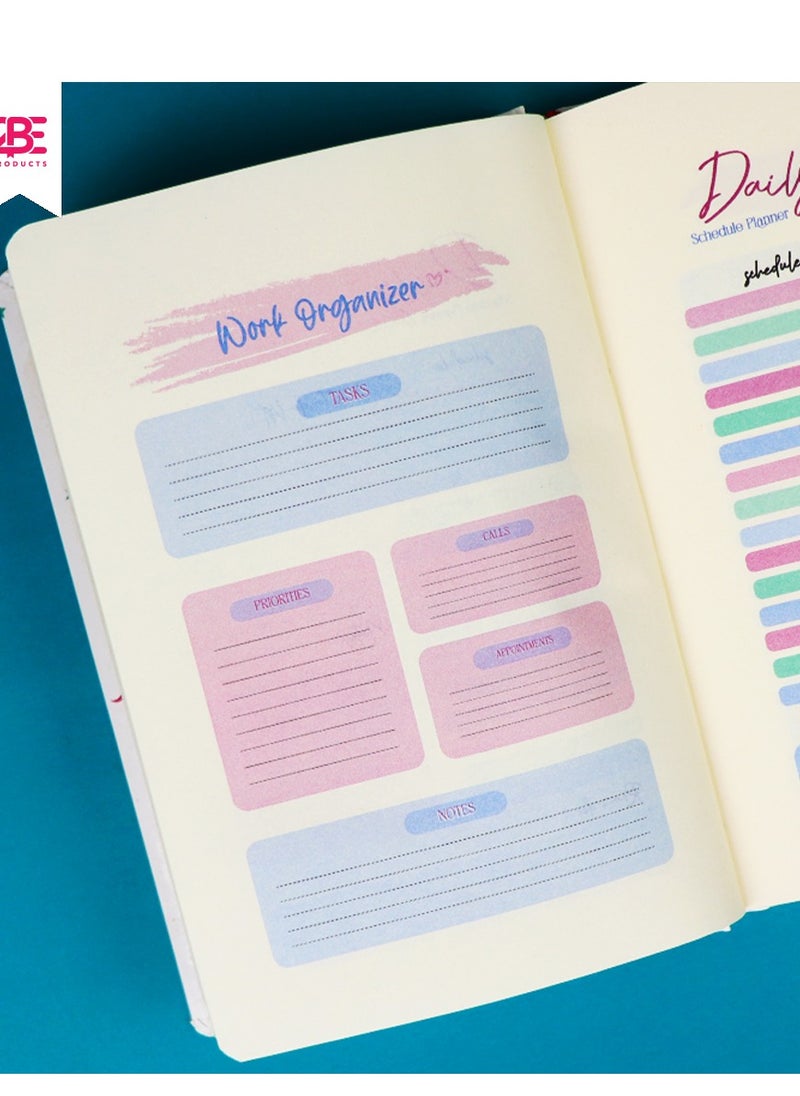 BE
PRODUCTS
Work Organizer
TASKS
PRIORITIES
CALLS
APPOINTMENTS
NOTES
Daily
Schedule Planner
schedule